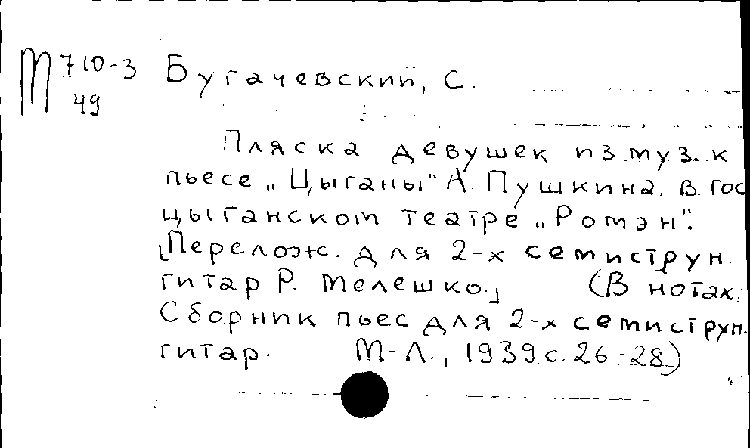 М 710-3 Бугачевский, С.
49
Пляска девушек из муз. к
пьесе „Цыганы" А. Пушкина. в гос
цыганском театре „Ромэн".
[Перелож. для 2-х семиструн.
гитар Р. Мелешко.] (В нотах:
Сборник пьес для 2-х семиструн.
гитар. М-Л., 1939 с. 26-28)